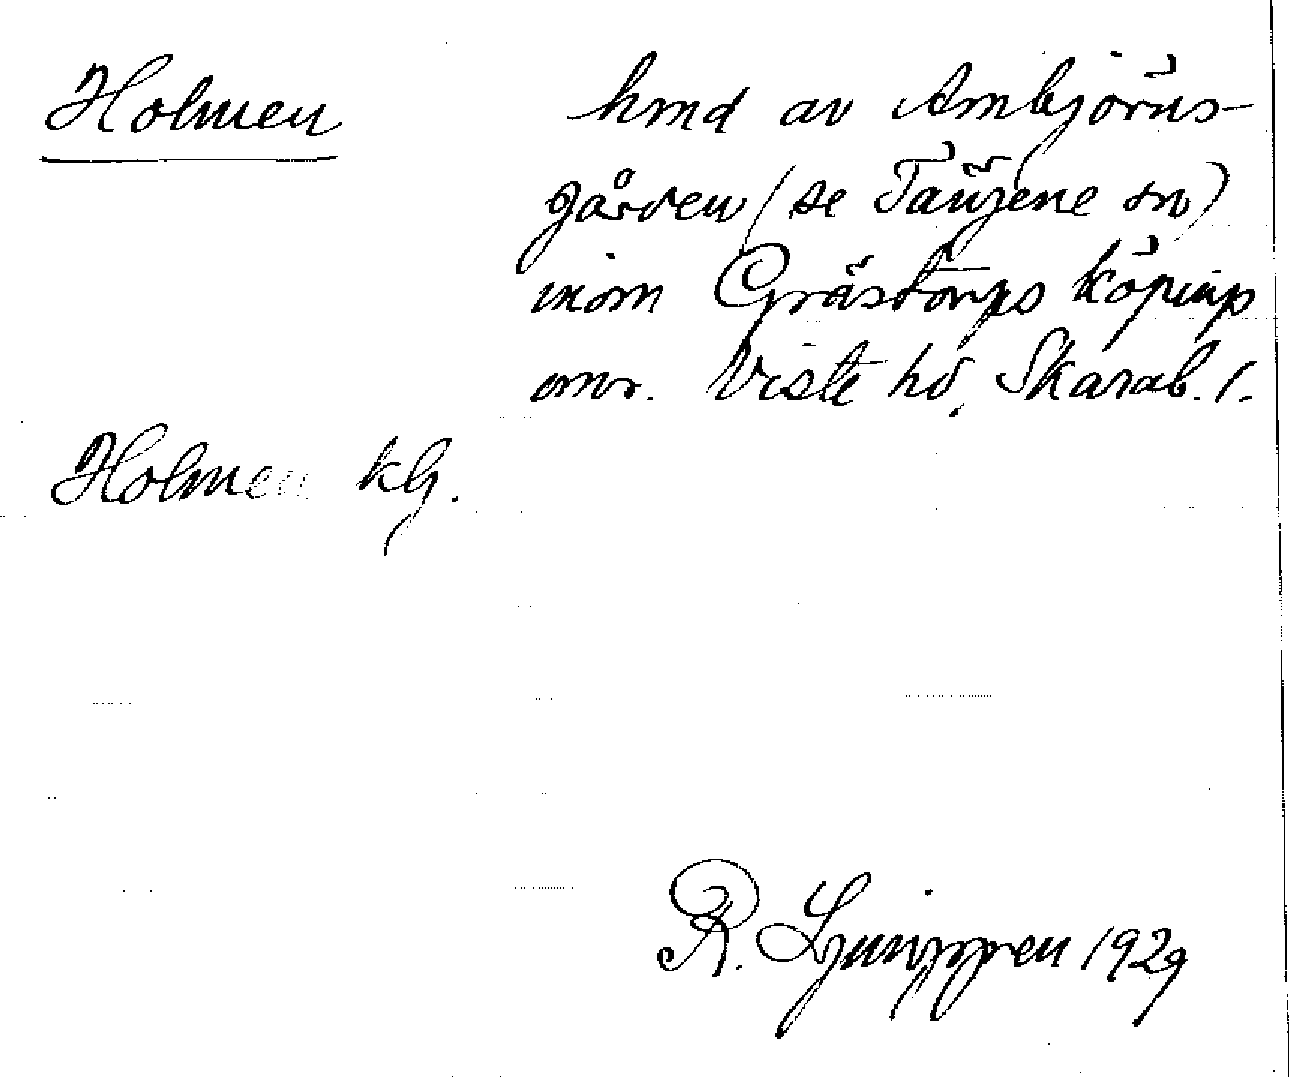 Holmen hmd av Ambjörns-
gården (se Tängene sn)
inom Grästorps köpings
omr. Viste hd, Skarab. l.
Holmen kG.
R. Ljunggren 1929